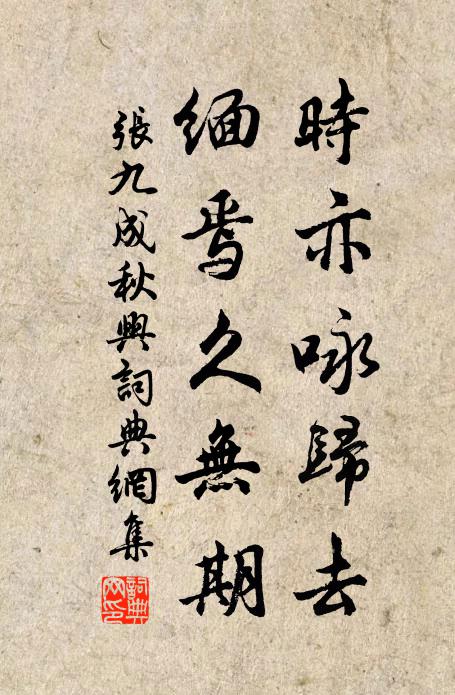 時亦咏歸去
緬焉久無期
張九成秋興詞典網集
詞典网印